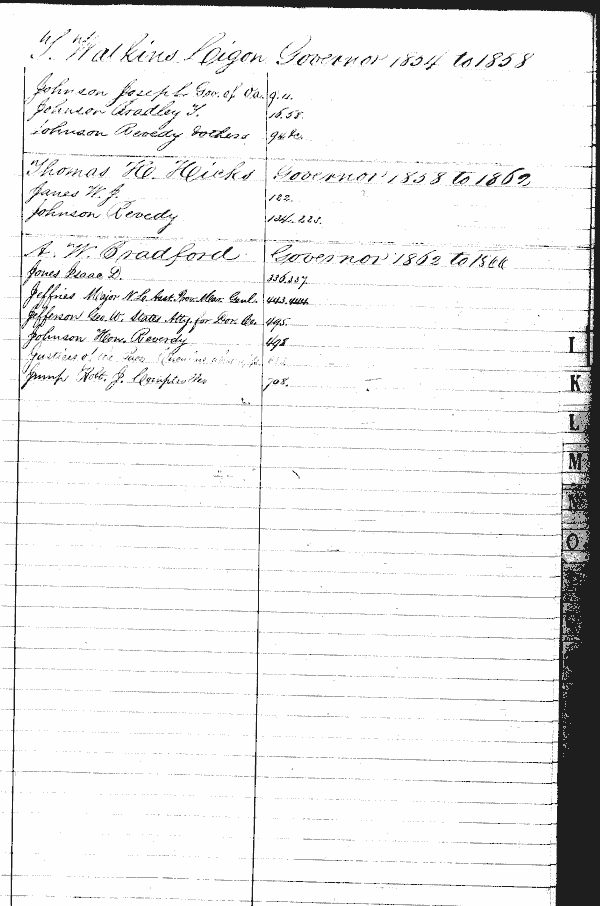 T. Watkins Ligon Governor 1854 to 1858
Johnson Joseph Gov. of Va. 9.11.
Johnson Bradley T. 16.58.
Johnson Reverdy & others
Thomas H. Hicks Governor 1858 to 1862
James W. J. 122.
Johnson Revedy 134.225.
A. W. Bradford Governor 1862 to 1866
Jones Isaac D. 336.337
Jeffries Major N. L. Asst. Prov. Mar. Genl. 443.444
Jefferson Geo. W. States Atty. for Dor. Co. 495.
Johnson Hon. Reverdy 498
Justices of the
Jump Robt. J. Comptroller 708.
I
K
L
M
N
O